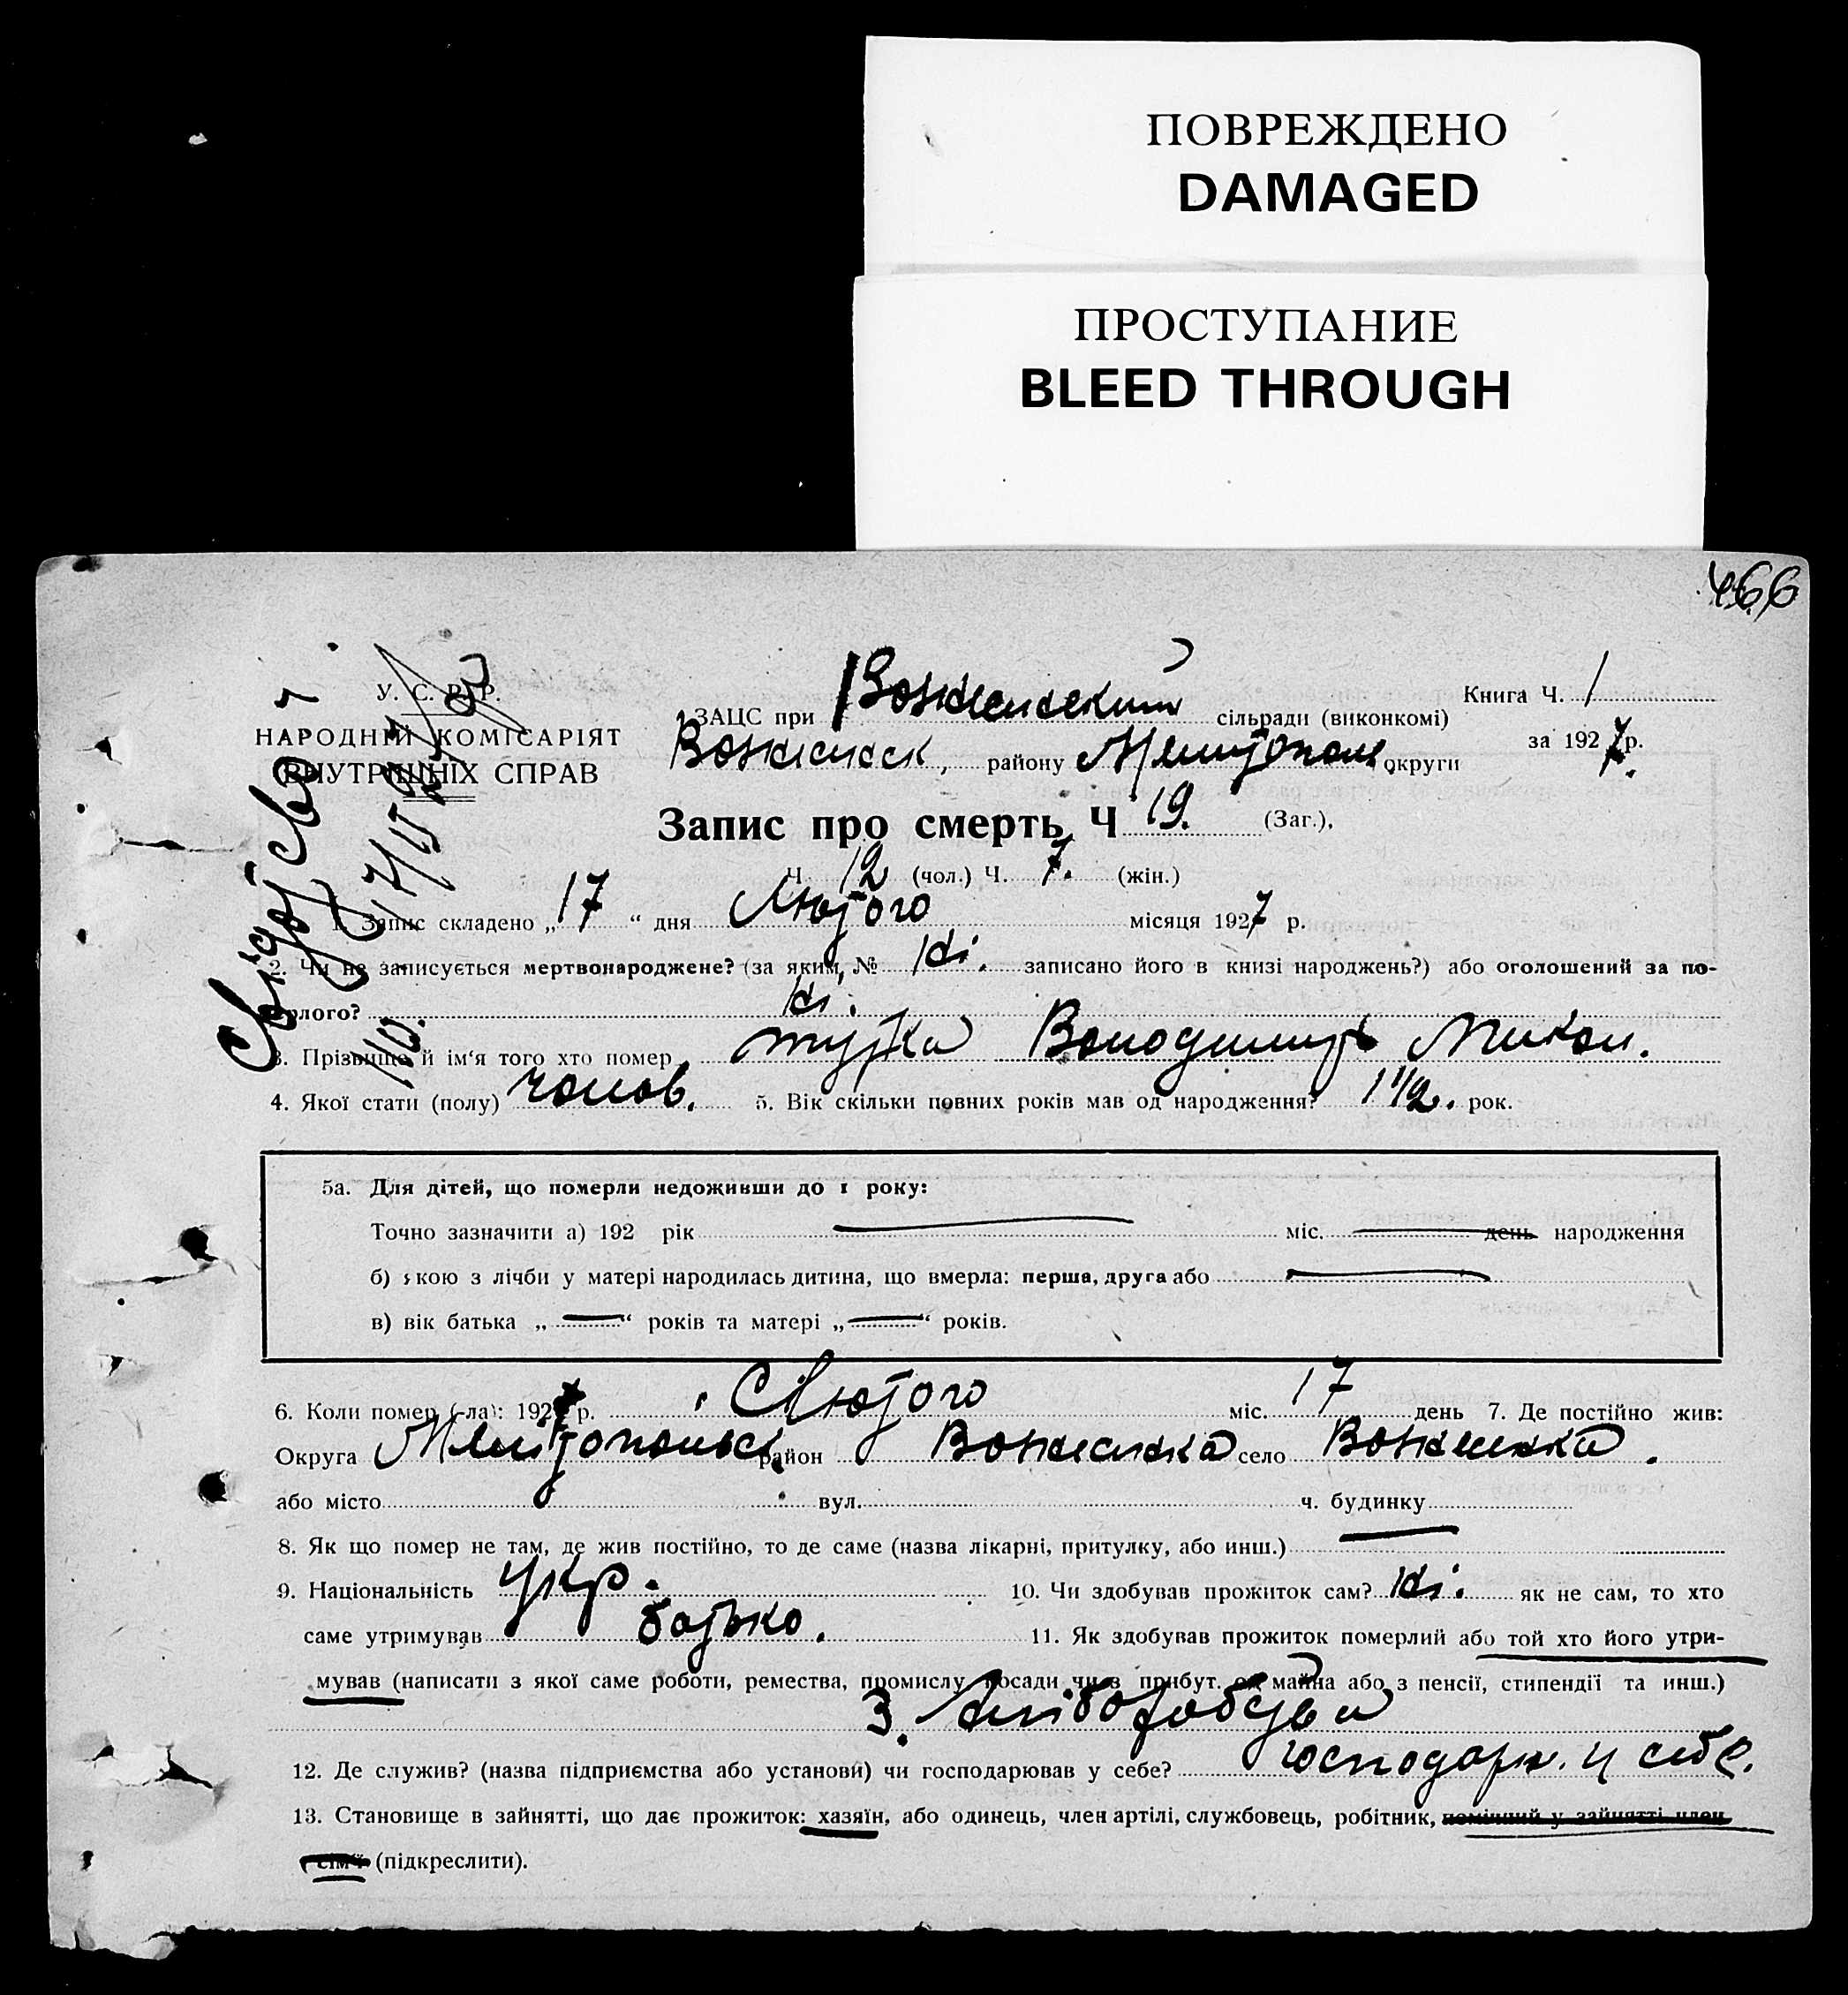 ПОВРЕЖДЕНО
DAMAGED
ПРОСТУПАНИЕ
BLEED THROUGH
466
У. С. Р. Р.
НАРОДНІЙ КОМІСАРІЯТ
ВНУТРІШНІХ СПРАВ
Книга Ч. 1
за 1927 р.
ЗАЦС при сільради (виконкомі)
району Мелитополь округи
Запис про смерть Ч 19. (Заг.),
Ч. 12 (чол.) Ч. 7. (жін.)
1. Запис складено „17“ дня Лютого місяця 1927 р.
2. Чи не записується мертвонароджене? (за яким № Ні. записано його в книзі народжень?) або оголошений за по-
мерлого? Ні.
3. Прізвище й ім'я того хто помер Володимир Микол.
4. Якої стати (полу) чолов. 5. Вік скільки повних років мав од народження? 1 1/2. рок.
5а. Для дітей, що померли недоживши до 1 року:
Точно зазначити а) 192 рік міс. день народження
б) якою з лічби у матері народилась дитина, що вмерла: перша, друга або
в) вік батька „ “ років та матері „ “ років.
6. Коли помер (-ла): 1927 р. Лютого міс. 17 день 7. Де постійно жив:
Округа Мелитопольск район село
або місто вул. ч. будинку
8. Як що помер не там, де жив постійно, то де саме (назва лікарні, притулку, або инш.)
9. Національність Укр. 10. Чи здобував прожиток сам? Ні. як не сам, то хто
саме утримував батько. 11. Як здобував прожиток померлий або той хто його утри-
мував (написати з якої саме роботи, ремества, промислу посади чи з прибут. од майна або з пенсії, стипендії та инш.)
З. хліборобства
12. Де служив? (назва підприємства або установи) чи господарював у себе? господарю. у себе.
13. Становище в зайнятті, що дає прожиток: хазяїн, або одинець, член артілі, службовець, робітник, помічний у зайнятті член
сім'ї (підкреслити).